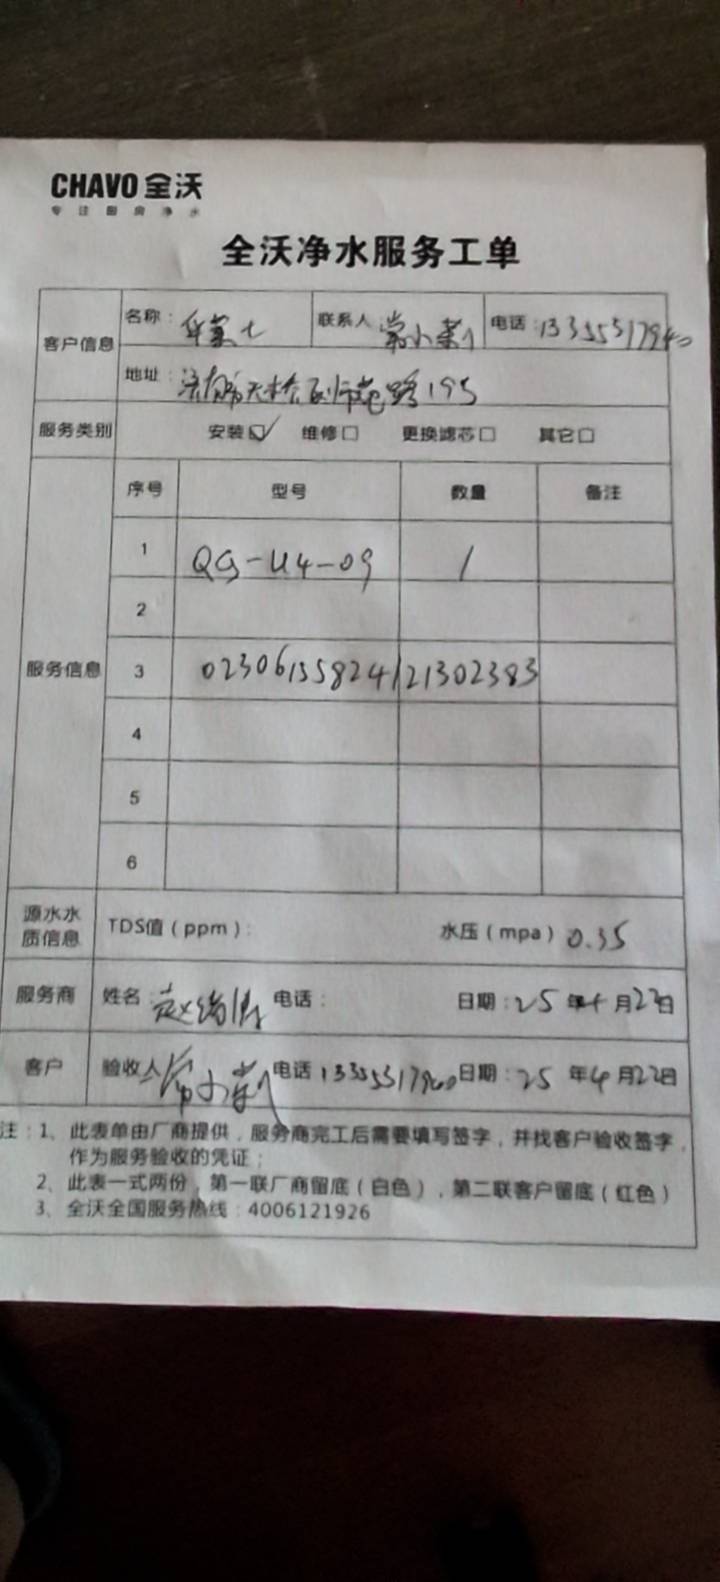 CHAVO 全沃
专注厨房净水
全沃净水服务工单
客户信息
名称：
联系人
电话：13355317940
地址：济南市天桥区师范路195
服务类别
安装☑ 维修□ 更换滤芯□ 其它□
服务信息
序号 型号 数量 备注
1 QG-U4-09 1
2
3 02306155824121302383
4
5
6
源水水质信息
TDS值（ppm）： 水压（mpa）0.35
服务商 姓名： 电话： 日期：25年4月22日
客户 验收人 电话13355317940 日期：25年4月22日
注：1、此表单由厂商提供，服务商完工后需要填写签字，并找客户验收签字，
作为服务验收的凭证；
2、此表一式两份，第一联厂商留底（白色），第二联客户留底（红色）
3、全沃全国服务热线：4006121926